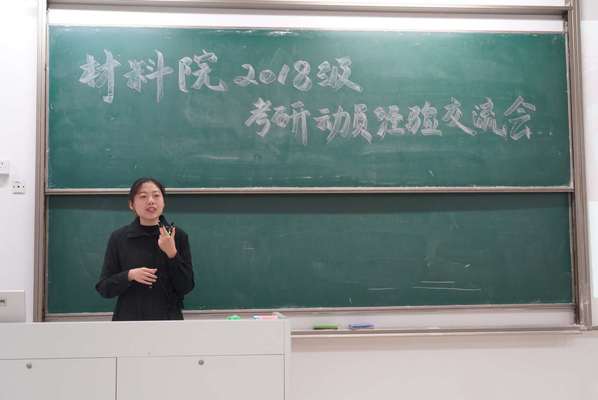 材料院2018级
考研动员经验交流会